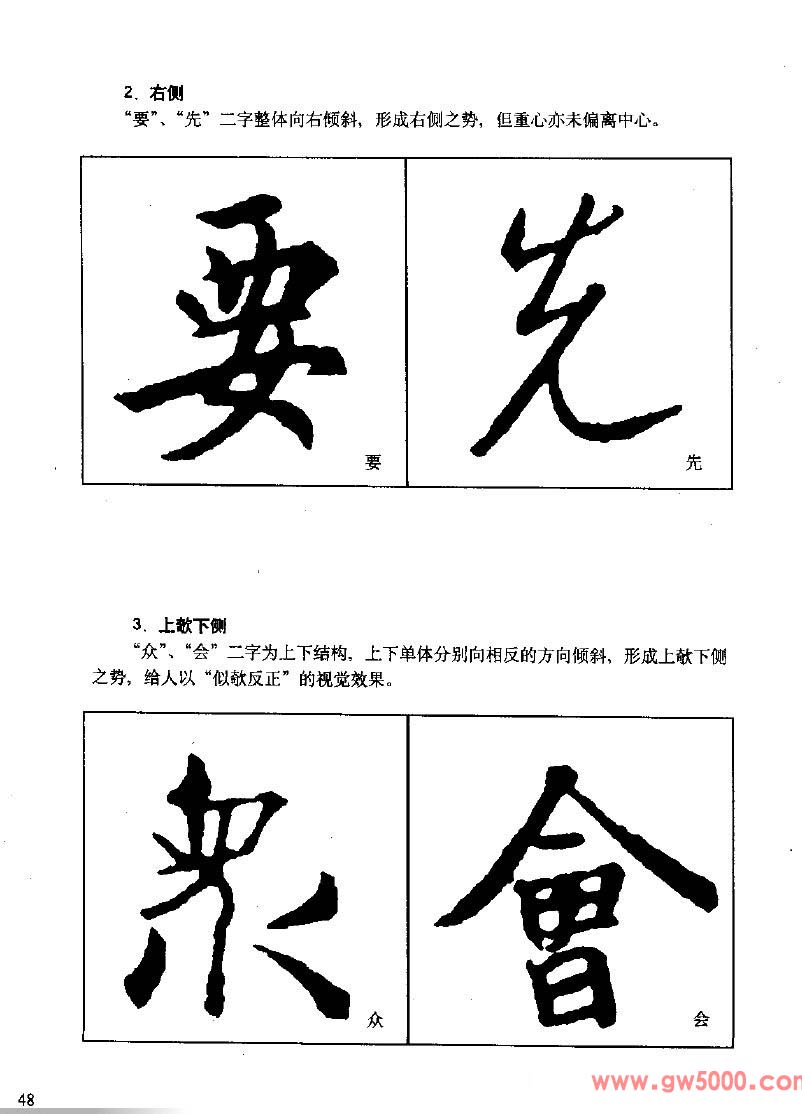 2．右侧
“要”、“先”二字整体向右倾斜，形成右侧之势，但重心亦未偏离中心。
要 先
要 先
3．上欹下侧
“众”、“会”二字为上下结构，上下单体分别向相反的方向倾斜，形成上欹下侧
之势，给人以“似欹反正”的视觉效果。
眾 會
众 会
www.gw5000.com
48